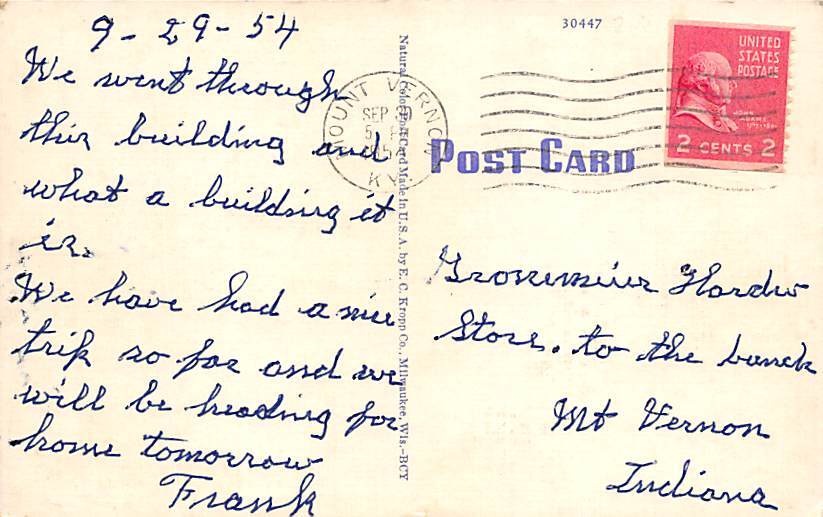 9-29-54
We went through
this building and
what a building it
is.
We have had a nice
trip so far and we
will be heading for
home tomorrow
Frank
Natural Color Post Card Made in U.S.A. by E. C. Kropp Co., Milwaukee, Wis.-BCY
30447
MOUNT VERNON
SEP
5
KY
UNITED
STATES
POSTAGE
JOHN
ADAMS
2 CENTS 2
POST CARD
Hardw
Store. to the bunch
Mt Vernon
Indiana